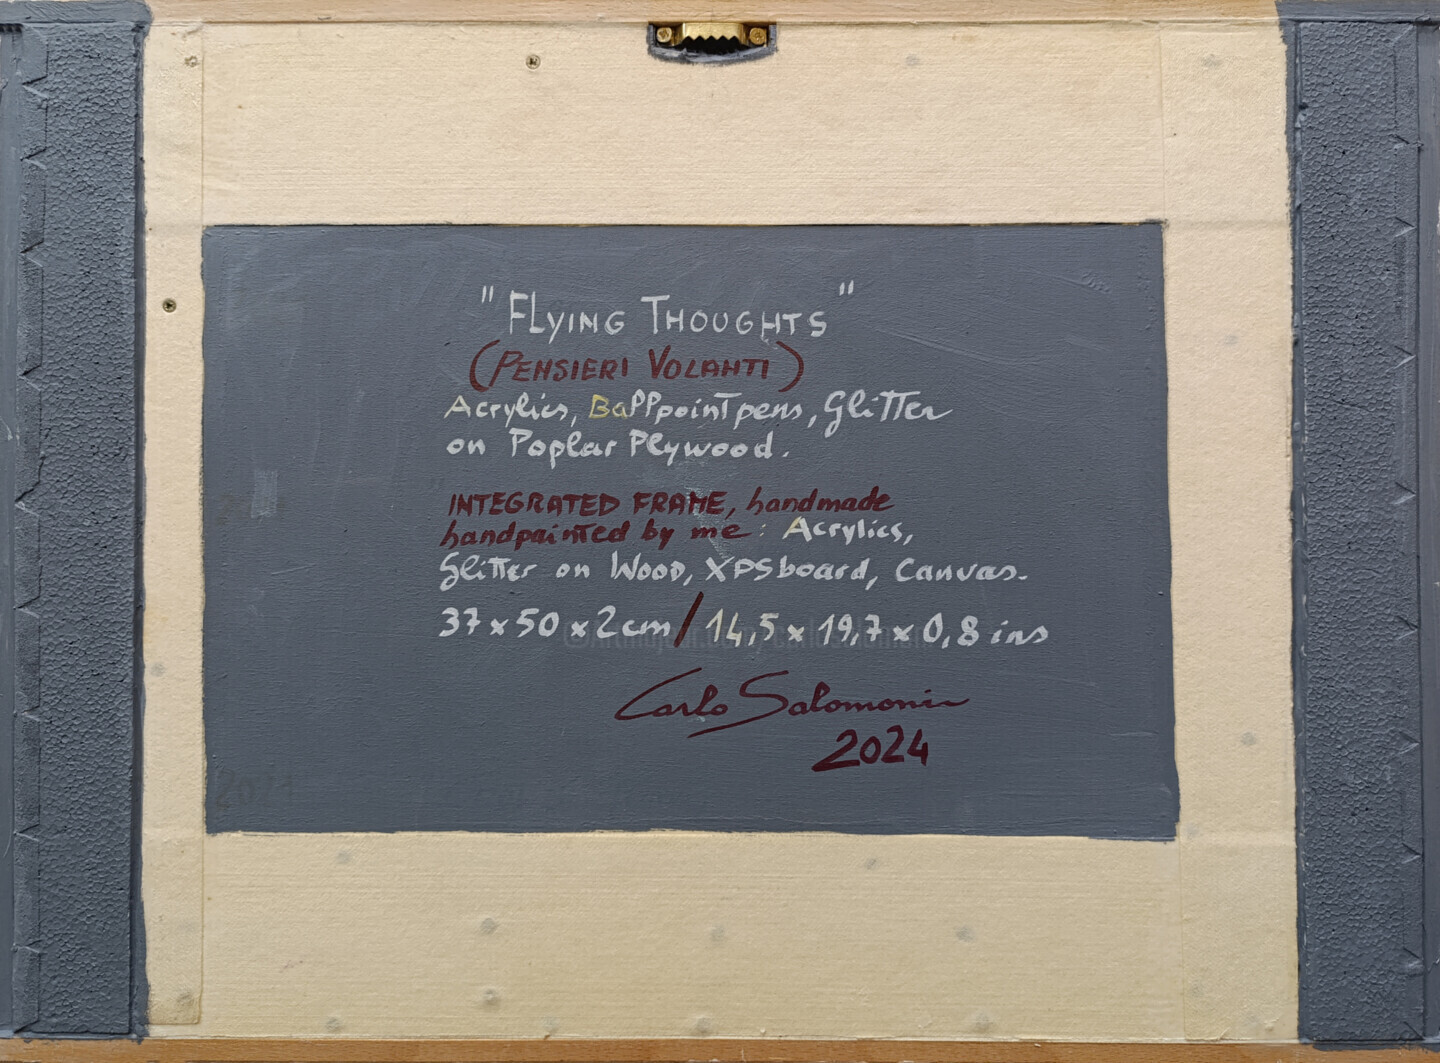 "FLYING THOUGHTS"
(PENSIERI VOLANTI)
Acrylics, Ballpointpens, Glitter
on Poplar Plywood.
INTEGRATED FRAME, handmade
handpainted by me: Acrylics,
Glitter on Wood, XPSboard, Canvas.
37x50x2cm/14,5x19,7x0,8 ins
Carlo Salomoni
2024